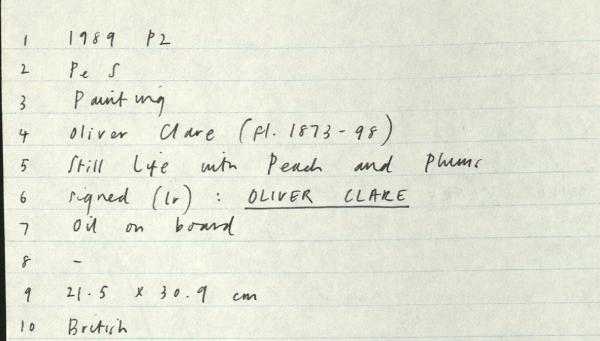 1 1989 P2
2 Pe S
3 Painting
4 Oliver Clare (fl. 1873-98)
5 Still Life with Peach and Plums
6 signed (lr) : OLIVER CLARE
7 Oil on board
8 -
9 21.5 x 30.9 cm
10 British